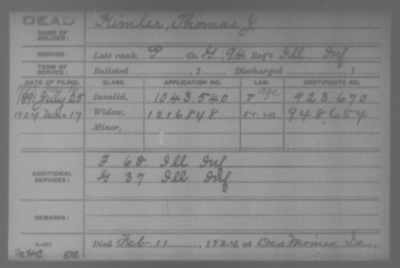 DEAD
NAME OF SOLDIER: Kimler, Thomas J.
SERVICE: Late rank, P Co. G, 94 Reg't Ill Inf
TERM OF SERVICE: Enlisted 1 Discharged 1
DATE OF FILING. CLASS. APPLICATION NO. LAW. CERTIFICATE NO.
1891 July 25 Invalid, 1043.540 923.670
1924 Mar 17 Widow, 1216848 948654
Minor,
ADDITIONAL SERVICES: F 68. Ill Inf
G 37 Ill Inf
REMARKS:
Died Feb 11, 1924, at Des Moines, Ia.